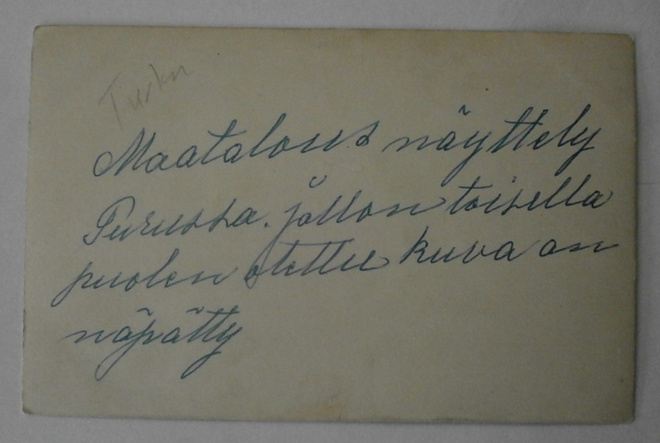 Turku
Maatalous näyttely
Turussa. jollon toisella
puolen otettu kuva on
näpätty